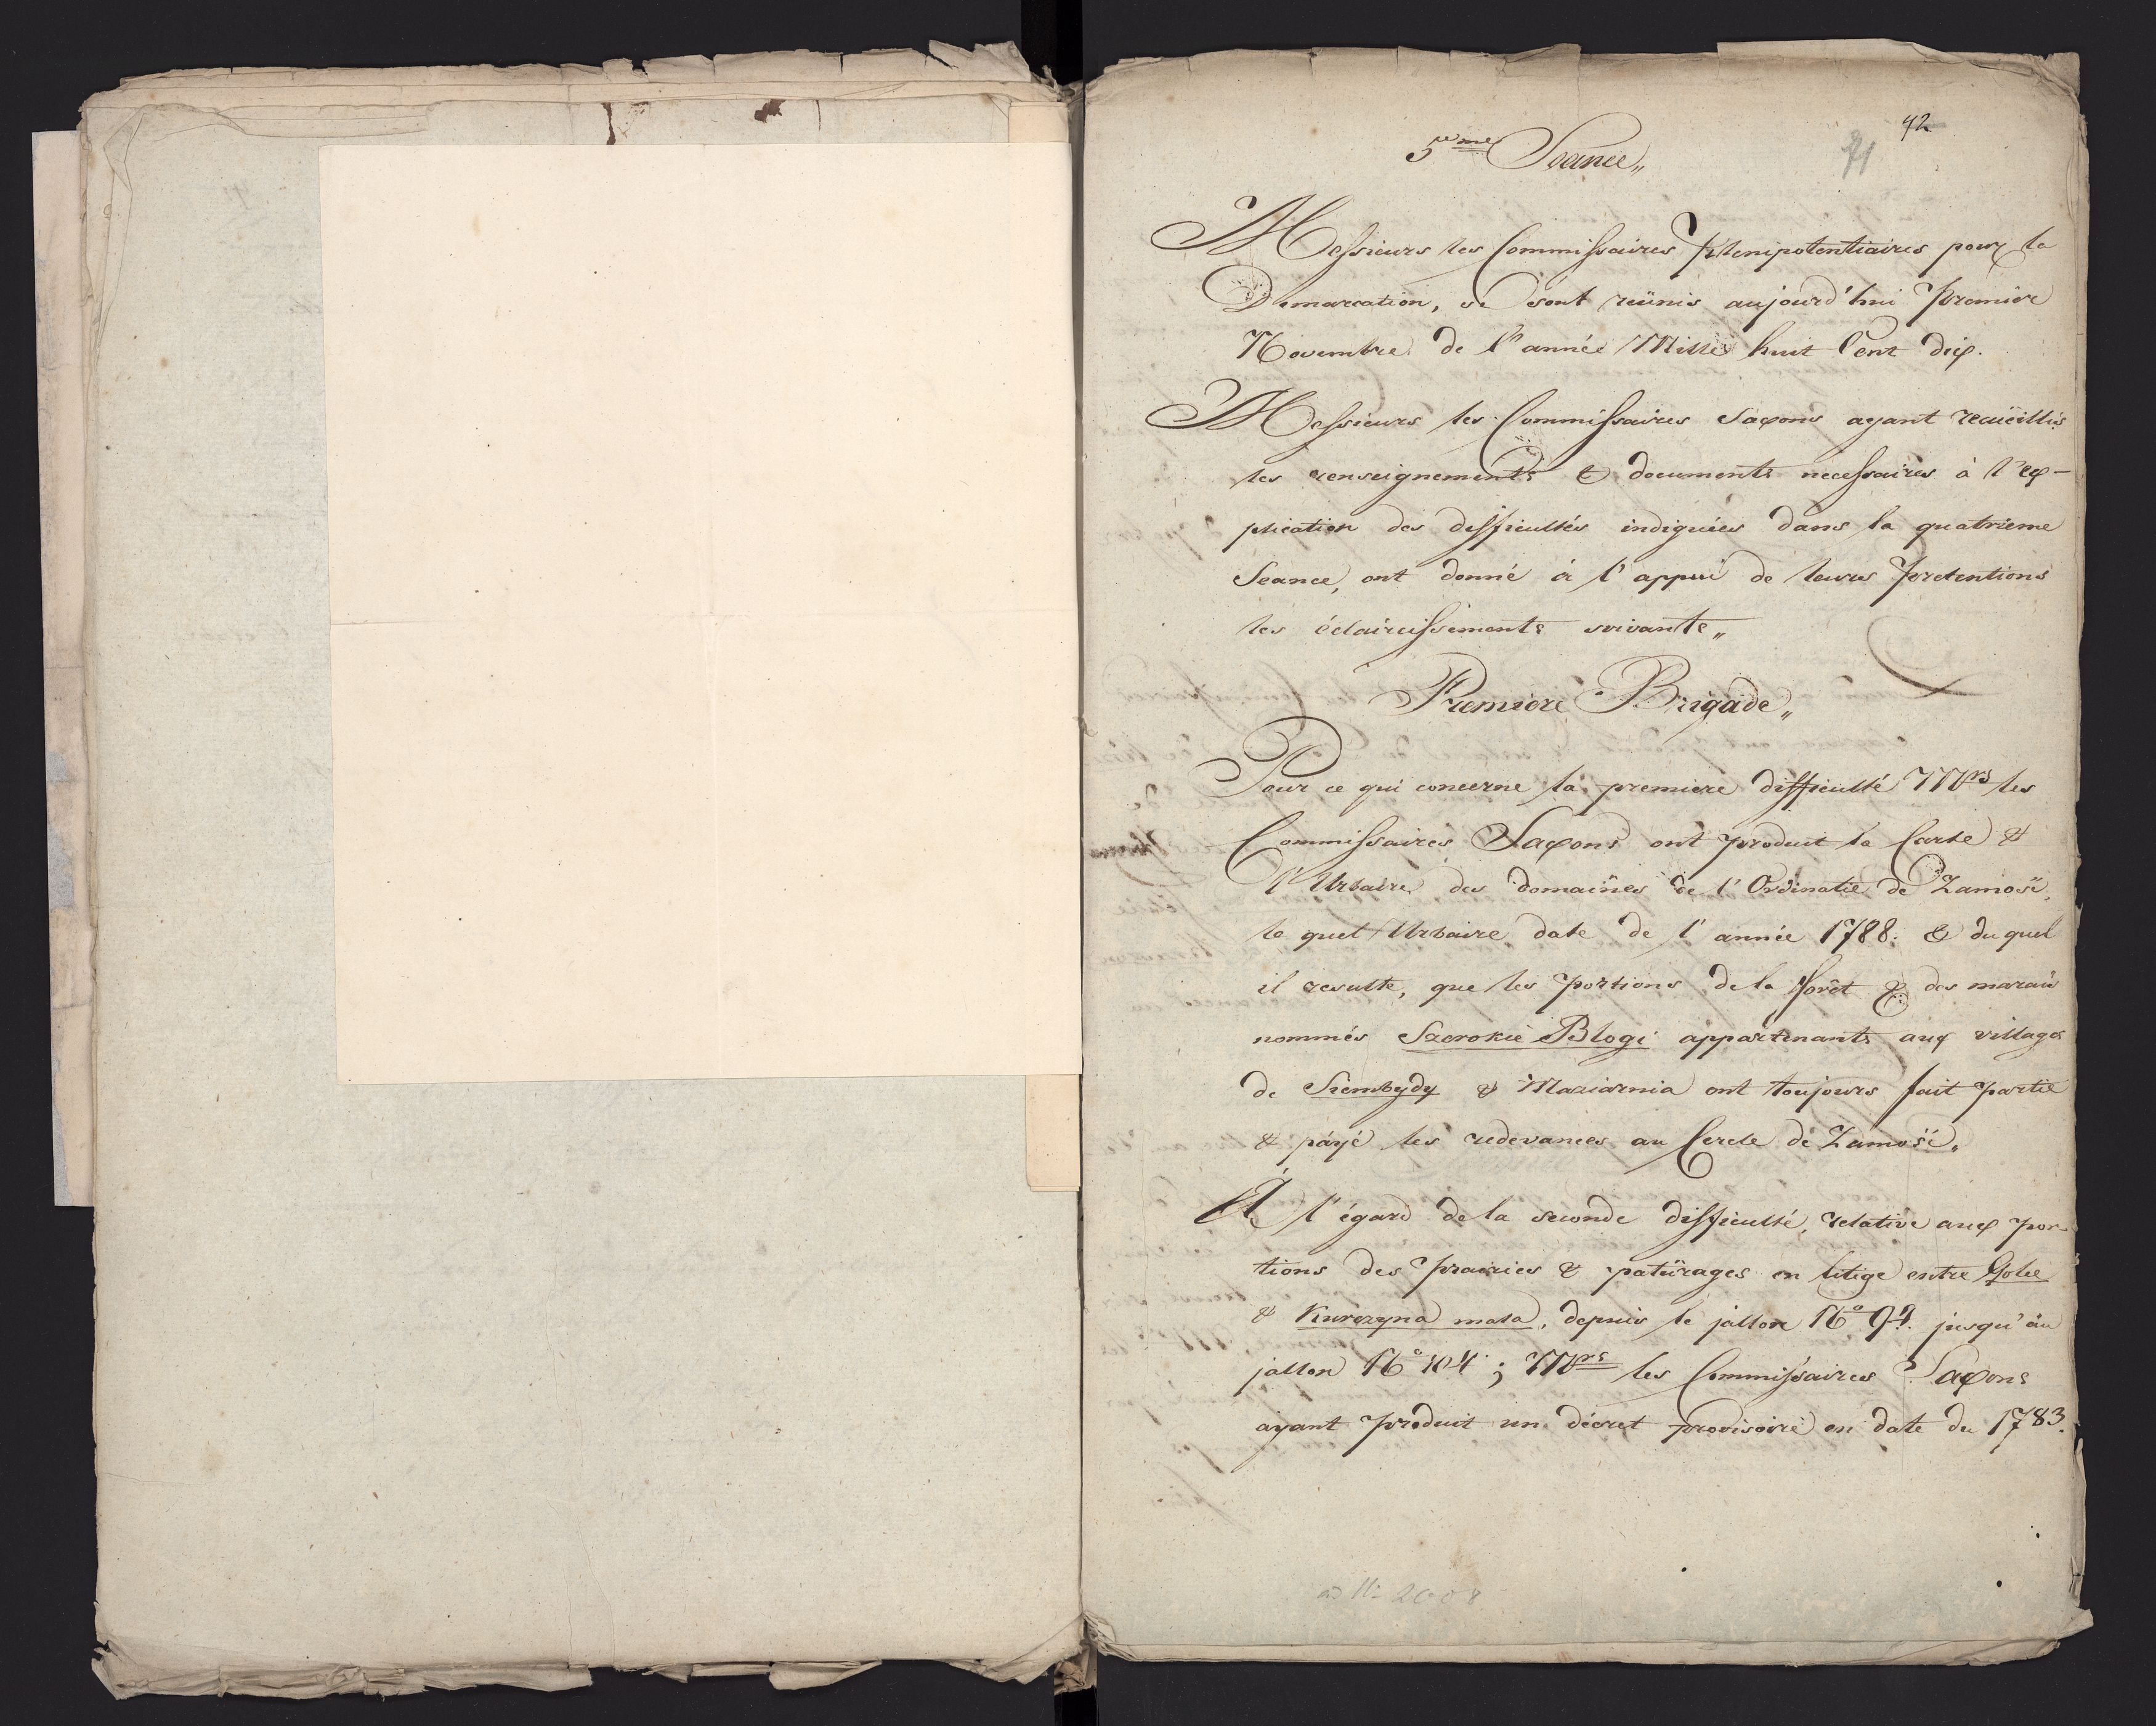 72
71
5eme Seance„
Messieurs les Commissaires Plenipotentiaires pour la
Demarcation, se sont reünis aujourd'hui Premiere
Novembre de l'année Mille huit Cent dix.
Messieurs les Commissaires Saxons ayant recueillis
les renseignements & documents necessaires à l'ex-
plication des difficultés indiquées dans la quatrieme
Seance, ont donné à l'appui de leurs Pretentions
les éclaircissements suivants„
Premiere Brigade„
Pour ce qui concerne la premiere difficulté Mrs les
Commissaires Saxons ont produit la Carte &
l'Urbaire des domaines de l'Ordinatie de Zamosc,
le quel Urbaire date de l'année 1788. & du quel
il resulte, que les portions de la forêt & des marais
nommés Szerokie Blogi appartenants aux villages
de Szembydy & Maziarnia ont toujours fait partie
& payé les redevances au Cercle de Zamość.
A l'égard de la seconde difficulté, relative aux por-
tions des prairies & paturages en litige entre Golce
& Kurczyna mala, depuis le jallon No 94. jusqu'au
jallon No 104; Mrs les Commissaires Saxons
ayant produit un décret provisoire en date du 1783.
ad N: 2008